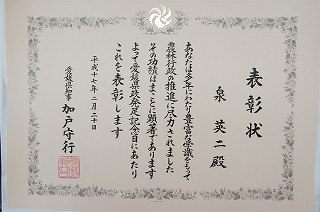 表彰状
泉 英二 殿
あなたは多年にわたり豊富な学識をもって
農林行政の推進に尽力されました
その功績はまことに顕著であります
よって愛媛県政発足記念日にあたり
これを表彰します
平成十七年二月二十日
愛媛県知事 加戸守行